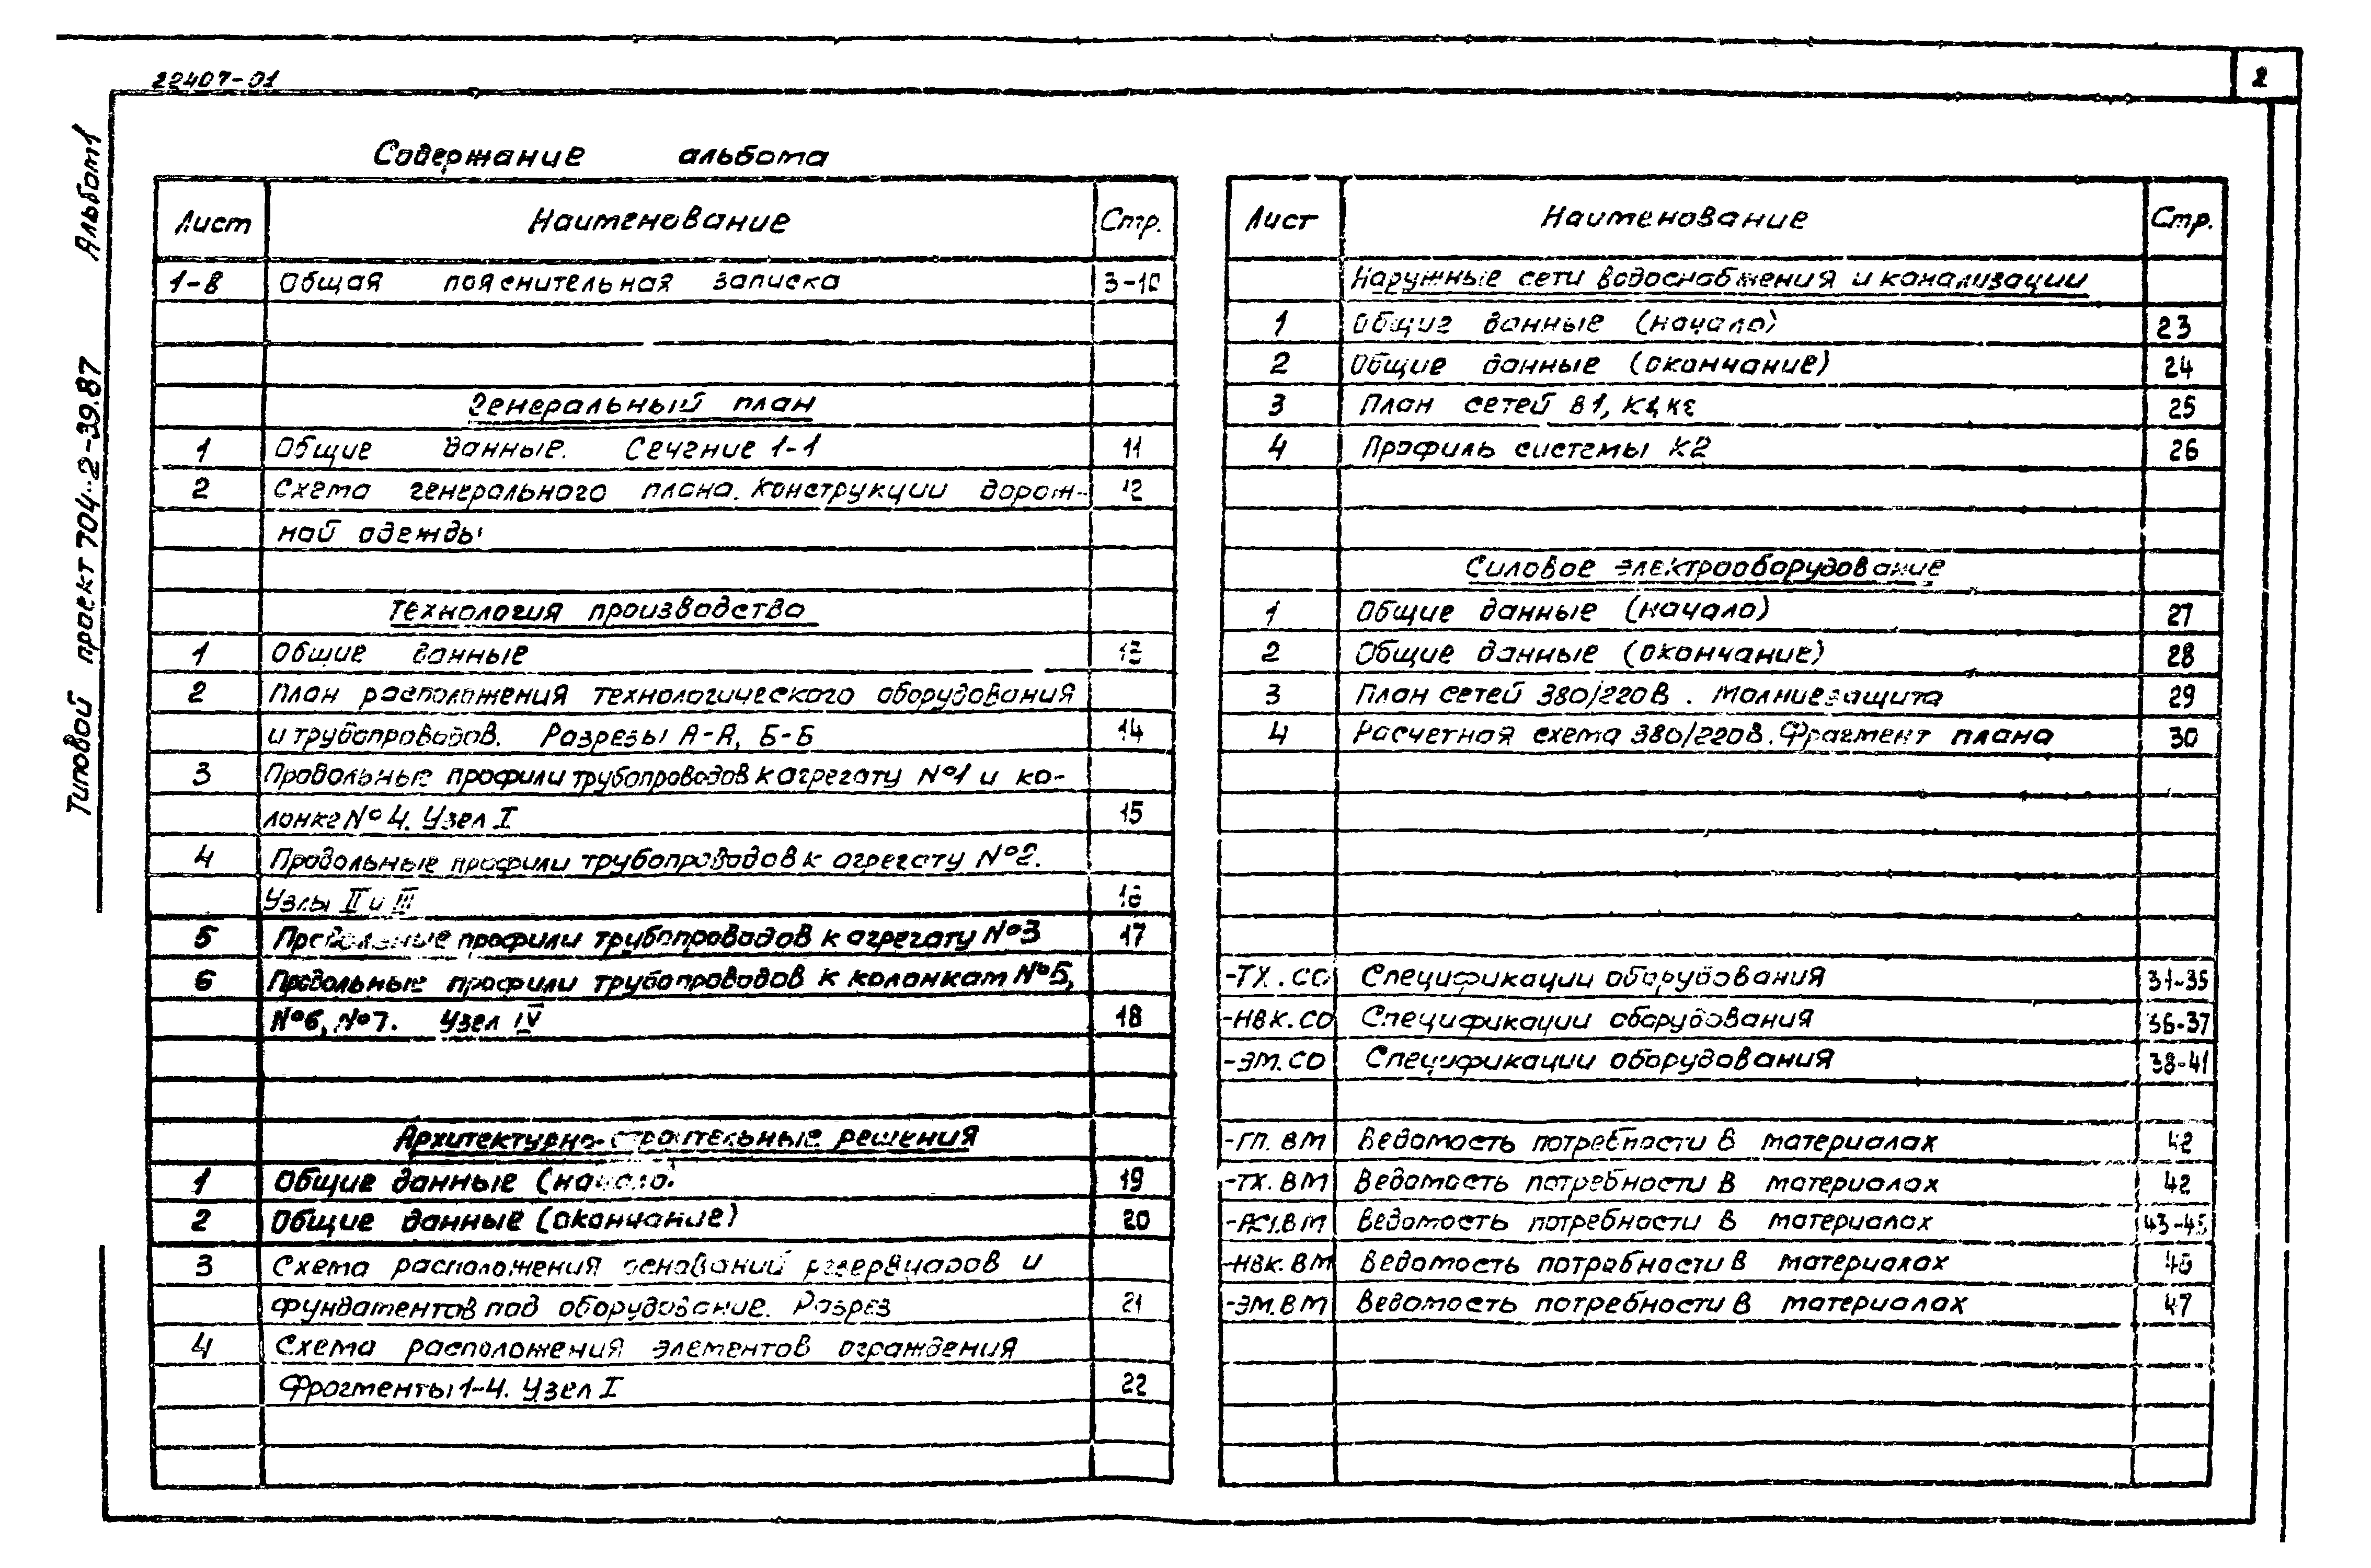 22407-01
2
Альбом 1
Типовой проект 704-2-39.87
Содержание альбома
Лист Наименование Стр.
1-8 Общая пояснительная записка 3-10
Генеральный план
1 Общие данные. Сечение 1-1 11
2 Схема генерального плана. Конструкции дорож- 12
ной одежды
Технология производства
1 Общие данные 13
2 План расположения технологического оборудования
и трубопроводов. Разрезы А-А, Б-Б 14
3 Продольные профили трубопроводов к агрегату №1 и ко-
лонке №4. Узел I 15
4 Продольные профили трубопроводов к агрегату №2.
Узлы II и III 16
5 Продольные профили трубопроводов к агрегату №3 17
6 Продольные профили трубопроводов к колонкам №5,
№6, №7. Узел IV 18
Архитектурно-строительные решения
1 Общие данные (начало) 19
2 Общие данные (окончание) 20
3 Схема расположения оснований резервуаров и
фундаментов под оборудование. Разрез 21
4 Схема расположения элементов ограждения
Фрагменты 1-4. Узел I 22
Лист Наименование Стр.
Наружные сети водоснабжения и канализации
1 Общие данные (начало) 23
2 Общие данные (окончание) 24
3 План сетей В1, К1, К2 25
4 Профиль системы К2 26
Силовое электрооборудование
1 Общие данные (начало) 27
2 Общие данные (окончание) 28
3 План сетей 380/220В. Молниезащита 29
4 Расчетная схема 380/220В. Фрагмент плана 30
-ТХ.СО Спецификации оборудования 31-35
-НВК.СО Спецификации оборудования 36-37
-ЭМ.СО Спецификации оборудования 38-41
-ГП.ВМ Ведомость потребности в материалах 42
-ТХ.ВМ Ведомость потребности в материалах 42
-АС1.ВМ Ведомость потребности в материалах 43-45
-НВК.ВМ Ведомость потребности в материалах 46
-ЭМ.ВМ Ведомость потребности в материалах 47